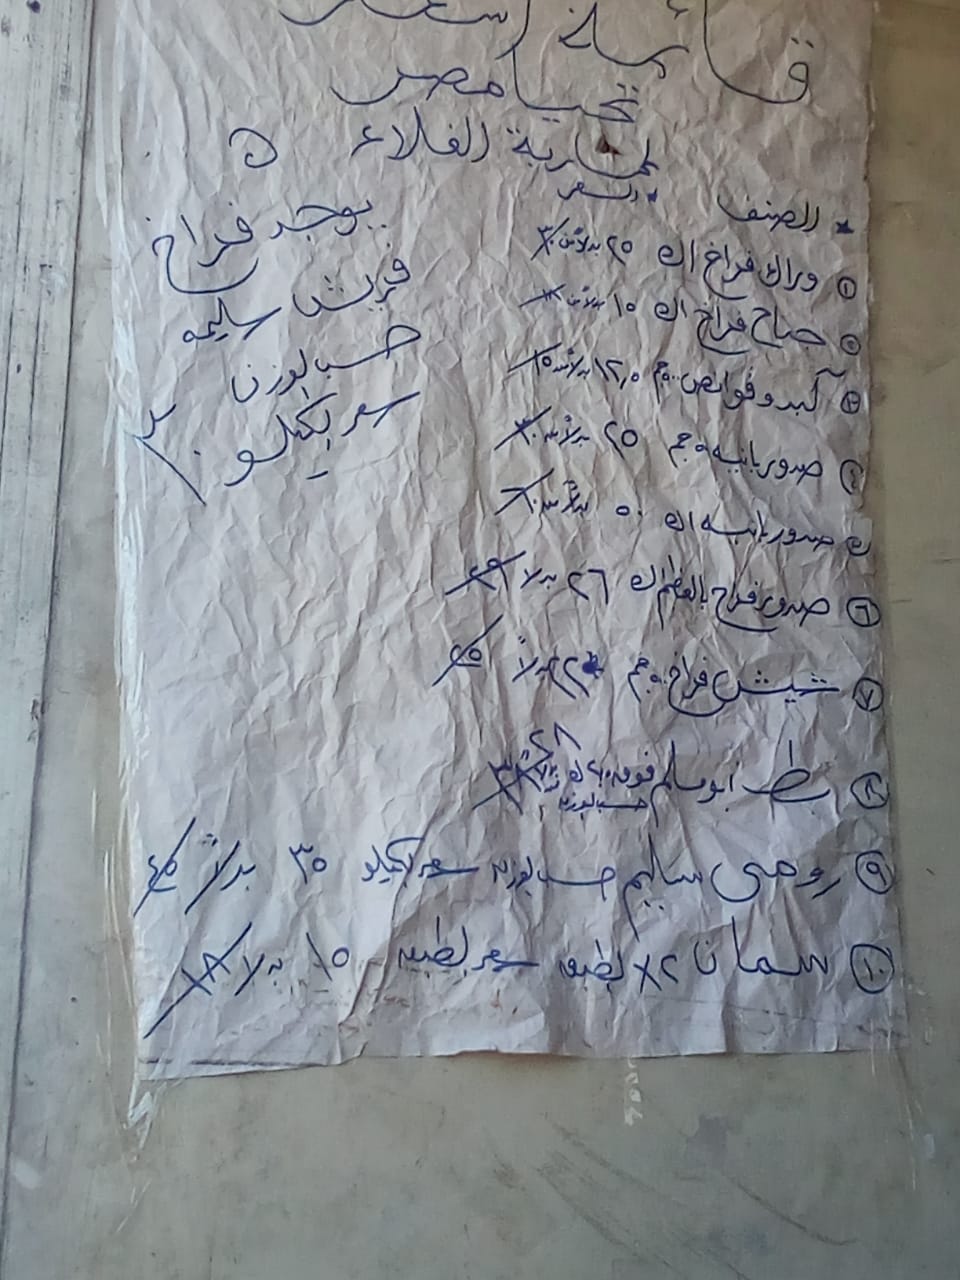 قائمة أسعار
تحيا مصر
لمحاربة الغلاء
* الصنف * السعر
١ وراك فراخ ١ك ٢٥ بدلاً من ٣٠
٢ جناح فراخ ١ك ١٥ بدلاً من
٣ كبد وقوانص ٥٠٠جم ١٢,٥ بدلاً من ١٥
٤ صدور بانيه ٥٠٠جم ٢٥ بدلاً من ٣٠
٥ صدور بانيه ١ك ٥٠ بدلاً من ٦٠
٦ صدور فراخ بالعظم ١ك ٢٦ بدلاً
٧ شيش فراخ ٥٠٠جم ٢٢ بدلاً ٢٥
٨ بط أبو سليم فوق ٢ك ٢٨ بدلاً
حسب الوزن
٩ رومى سليم حسب الوزن سعر الكيلو ٣٥ بدلاً ٤٥
١٠ سمان ٢× الطبق سعر الطبق ١٥ بدلا ١٨
٥
يوجد فراخ
فريش سليمه
حسب الوزن
سعر الكيلو ٢٠